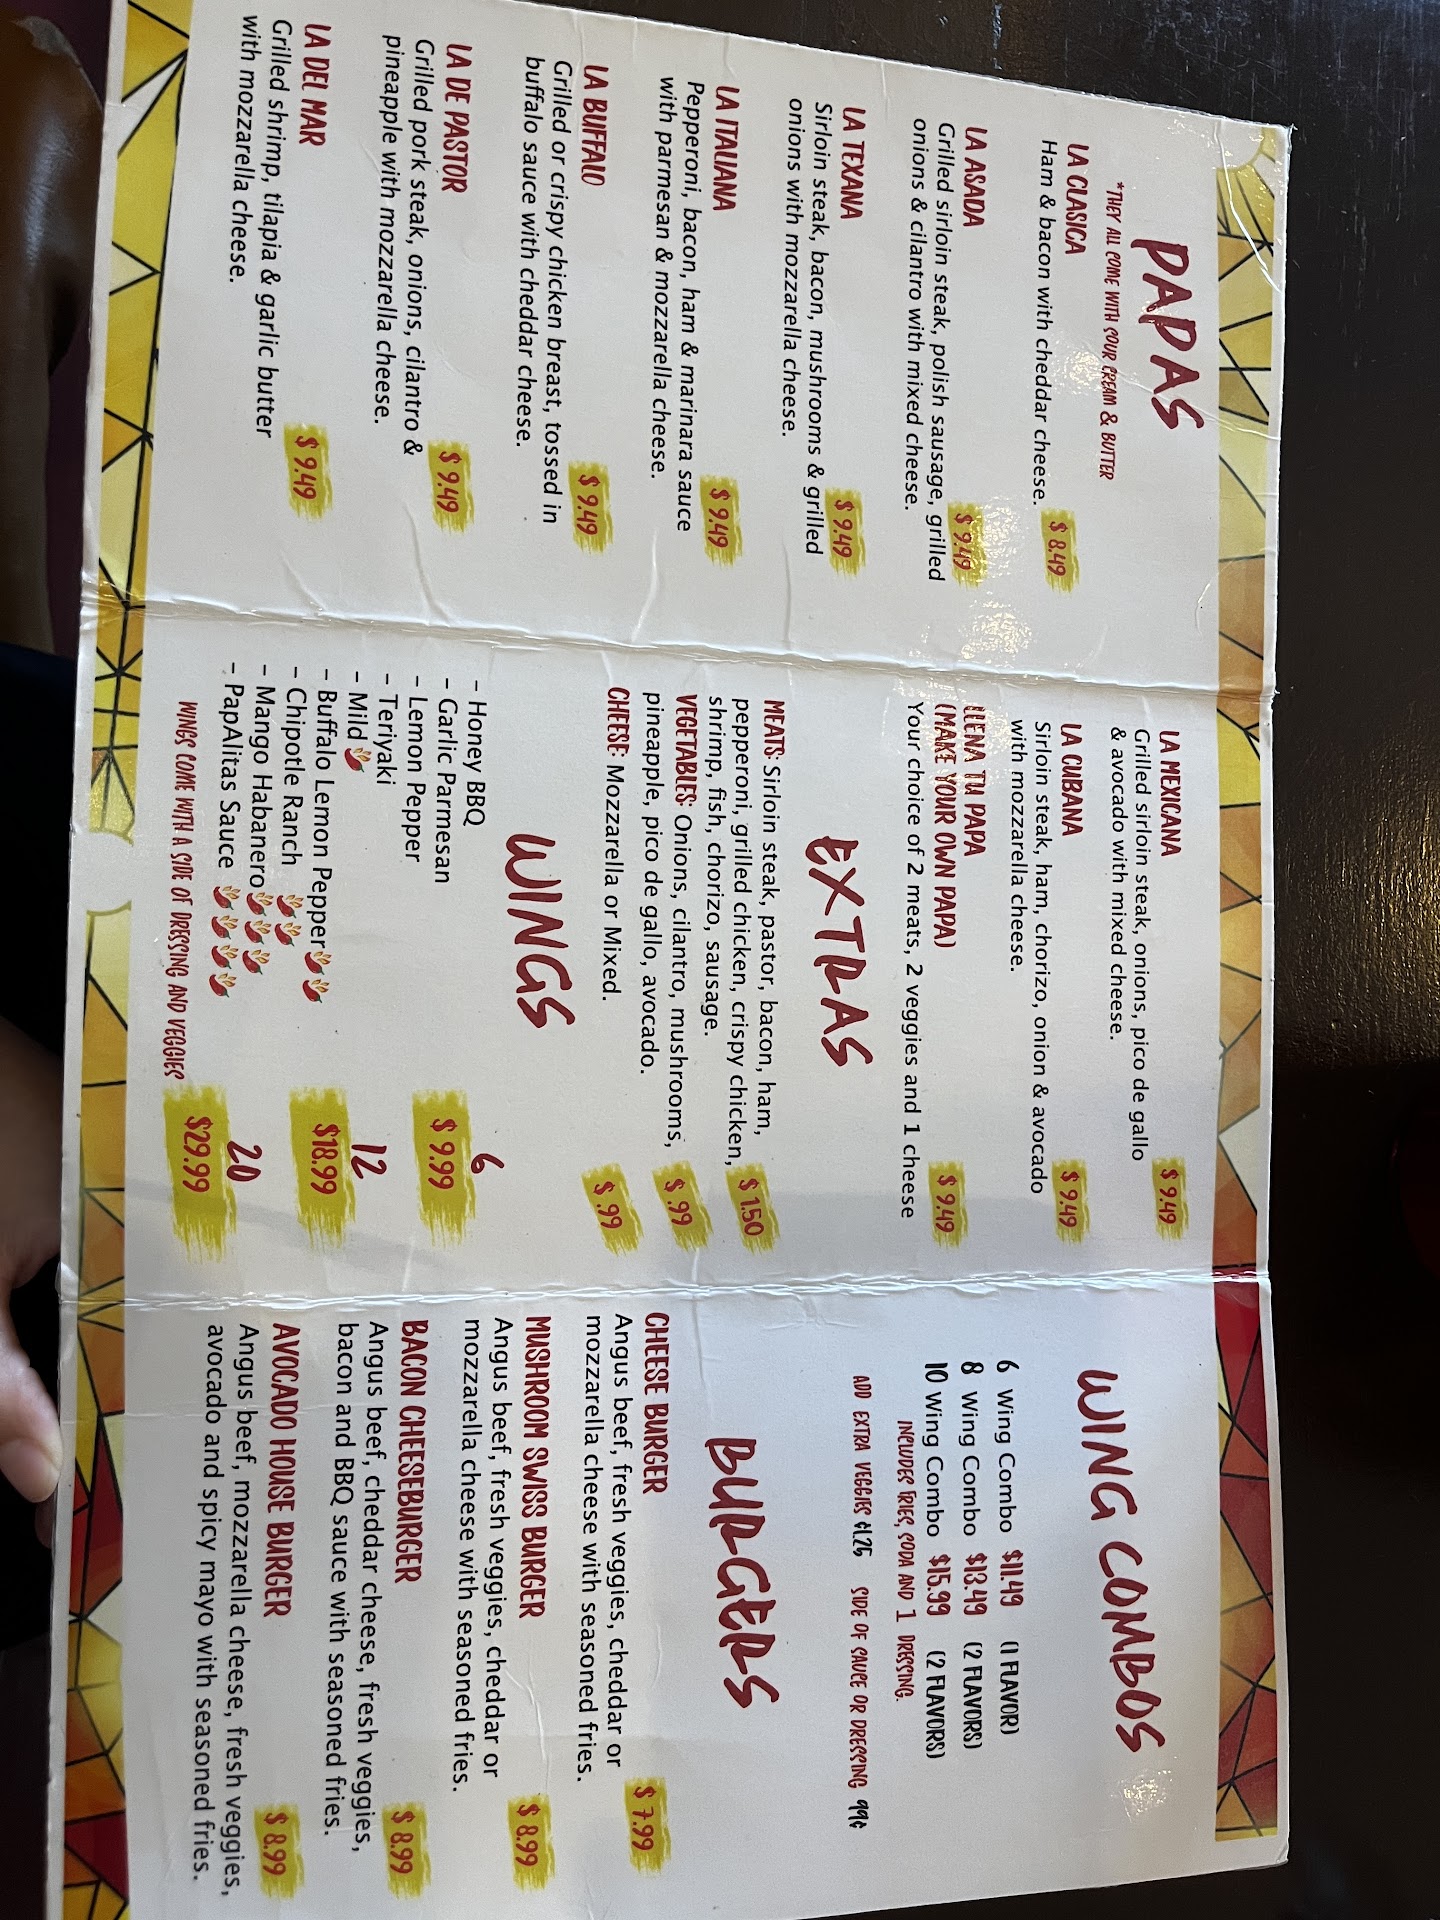 PAPAS
*THEY ALL COME WITH SOUR CREAM & BUTTER
LA CLASICA
Ham & bacon with cheddar cheese.
$ 8.49
LA ASADA
Grilled sirloin steak, polish sausage, grilled
onions & cilantro with mixed cheese.
$ 9.49
LA TEXANA
Sirloin steak, bacon, mushrooms & grilled
onions with mozzarella cheese.
$ 9.49
LA ITALIANA
Pepperoni, bacon, ham & marinara sauce
with parmesan & mozzarella cheese.
$ 9.49
LA BUFFALO
Grilled or crispy chicken breast, tossed in
buffalo sauce with cheddar cheese.
$ 9.49
LA DE PASTOR
Grilled pork steak, onions, cilantro &
pineapple with mozzarella cheese.
$ 9.49
LA DEL MAR
Grilled shrimp, tilapia & garlic butter
with mozzarella cheese.
$ 9.49
LA MEXICANA
Grilled sirloin steak, onions, pico de gallo
& avocado with mixed cheese.
$ 9.49
LA CUBANA
Sirloin steak, ham, chorizo, onion & avocado
with mozzarella cheese.
$ 9.49
LLENA TU PAPA
(MAKE YOUR OWN PAPA)
Your choice of 2 meats, 2 veggies and 1 cheese
$ 9.49
EXTRAS
MEATS: Sirloin steak, pastor, bacon, ham,
pepperoni, grilled chicken, crispy chicken,
shrimp, fish, chorizo, sausage.
$ 1.50
VEGETABLES: Onions, cilantro, mushrooms,
pineapple, pico de gallo, avocado.
$ .99
CHEESE: Mozzarella or Mixed.
$ .99
WINGS
- Honey BBQ
- Garlic Parmesan
- Lemon Pepper
- Teriyaki
- Mild
- Buffalo Lemon Pepper
- Chipotle Ranch
- Mango Habanero
- PapAlitas Sauce
6
$ 9.99
12
$18.99
20
$29.99
WINGS COME WITH A SIDE OF DRESSING AND VEGGIES
WING COMBOS
6 Wing Combo $11.49 (1 FLAVOR)
8 Wing Combo $13.49 (2 FLAVORS)
10 Wing Combo $15.99 (2 FLAVORS)
INCLUDES FRIES, SODA AND 1 DRESSING.
ADD EXTRA VEGGIES $1.25 SIDE OF SAUCE OR DRESSING 99¢
BURGERS
CHEESE BURGER
Angus beef, fresh veggies, cheddar or
mozzarella cheese with seasoned fries.
$ 7.99
MUSHROOM SWISS BURGER
Angus beef, fresh veggies, cheddar or
mozzarella cheese with seasoned fries.
$ 8.99
BACON CHEESEBURGER
Angus beef, cheddar cheese, fresh veggies,
bacon and BBQ sauce with seasoned fries.
$ 8.99
AVOCADO HOUSE BURGER
Angus beef, mozzarella cheese, fresh veggies,
avocado and spicy mayo with seasoned fries.
$ 8.99